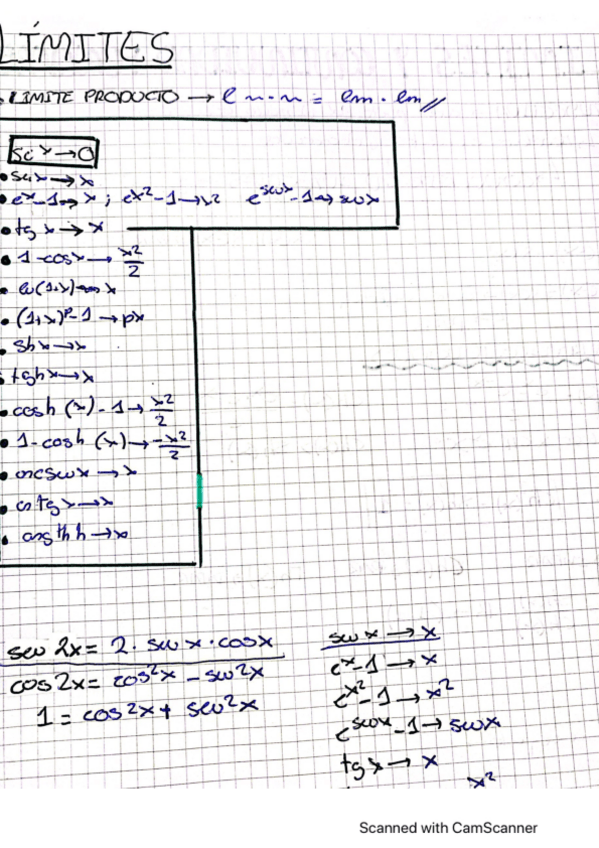 LÍMITES
LIMITE PRODUCTO → lm·n = lm · lm //
si x→0
• senx → x
• e^x-1 → x ; e^x²-1 → x² e^senx-1 → senx
• tg x → x
• 1-cosx → x²/2
• ln(1+x) → x
• (1+x)^p-1 → px
• shx → x
• tghx → x
• cosh (x)-1 → x²/2
• 1-cosh (x) → -x²/2
• arcsenx → x
• artg x → x
• argthh → x
sen 2x = 2· senx·cosx
cos2x = cos²x - sen²x
1 = cos²x + sen²x
senx → x
e^x-1 → x
e^x²-1 → x²
e^senx-1 → senx
tg x → x
x²
Scanned with CamScanner